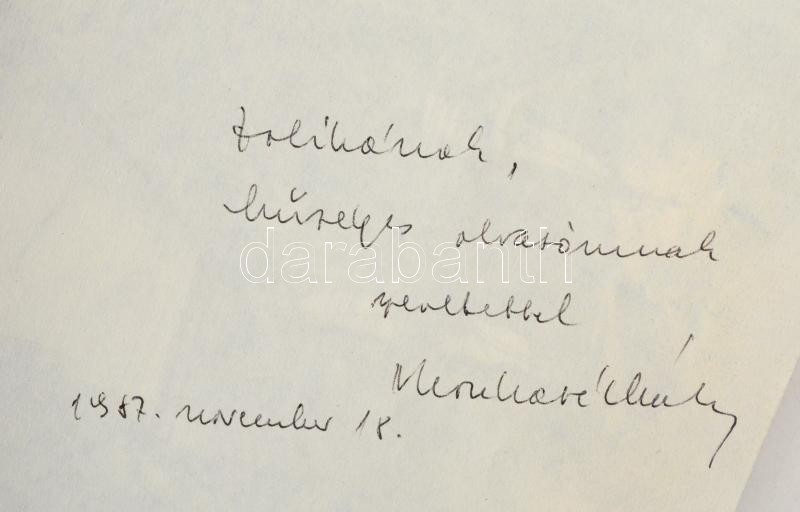 Zolikának,
hűséges olvasómnak
szeretettel
1987. november 18.
darabanth